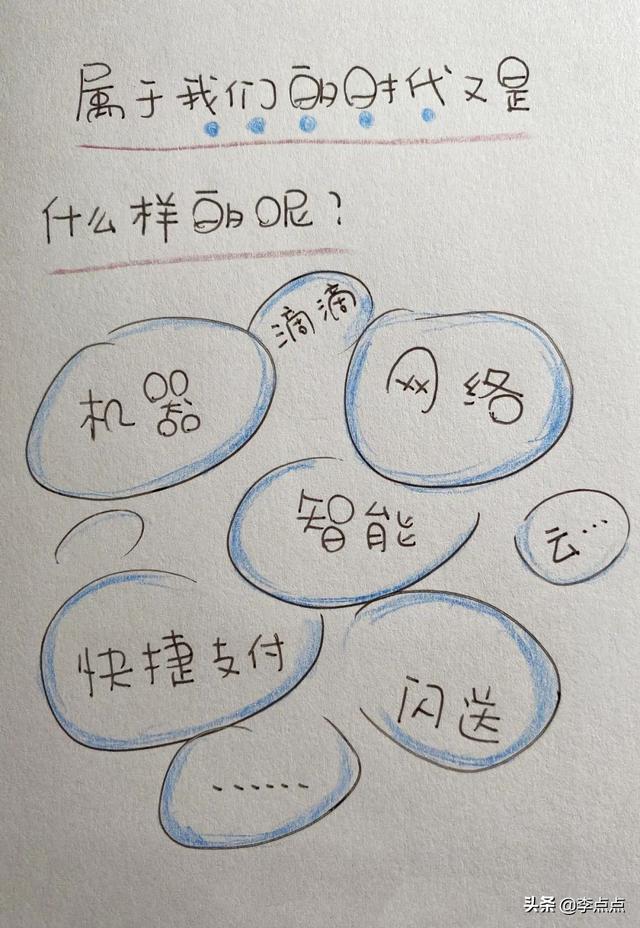 属于我们的时代又是
什么样的呢？
滴滴
机器
网络
智能
云…
快捷支付
闪送
……
头条 @李点点